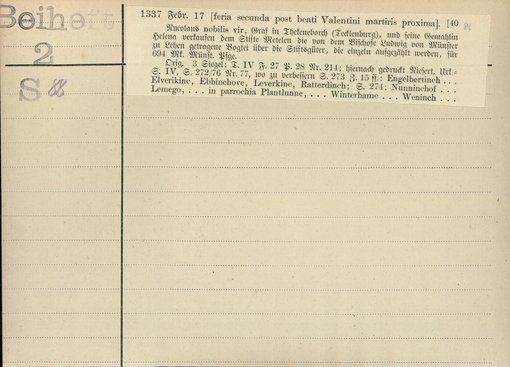 Beiheft
2
S 88
1337 Febr. 17 [feria secunda post beati Valentini martiris proxima]. [40
Nycolaus nobilis vir, Graf in Thekeneborch (Tecklenburg), und seine Gemahlin
Helena verkaufen dem Stifte Metelen die von dem Bischofe Ludwig von Münster
zu Lehen getragene Vogtei über die Stiftsgüter, die einzeln aufgezählt werden, für
694 Mk. Münst. Pfge.
Orig. 3 Siegel; T. IV F. 27 P. 28 Nr. 214; hiernach gedruckt Niesert, Urk=
S. IV, S. 272/76 Nr. 77, wo zu verbessern S. 273 Z. 15 ff.: Engelbertinch . . .
Elverikinc, Ebbinchove, Leverkinc, Ratterdinch; S. 274: Nunninchof . . .
Lemego, . . . in parrochia Plantlunne, . . . Winterhame . . . Weninch . . .